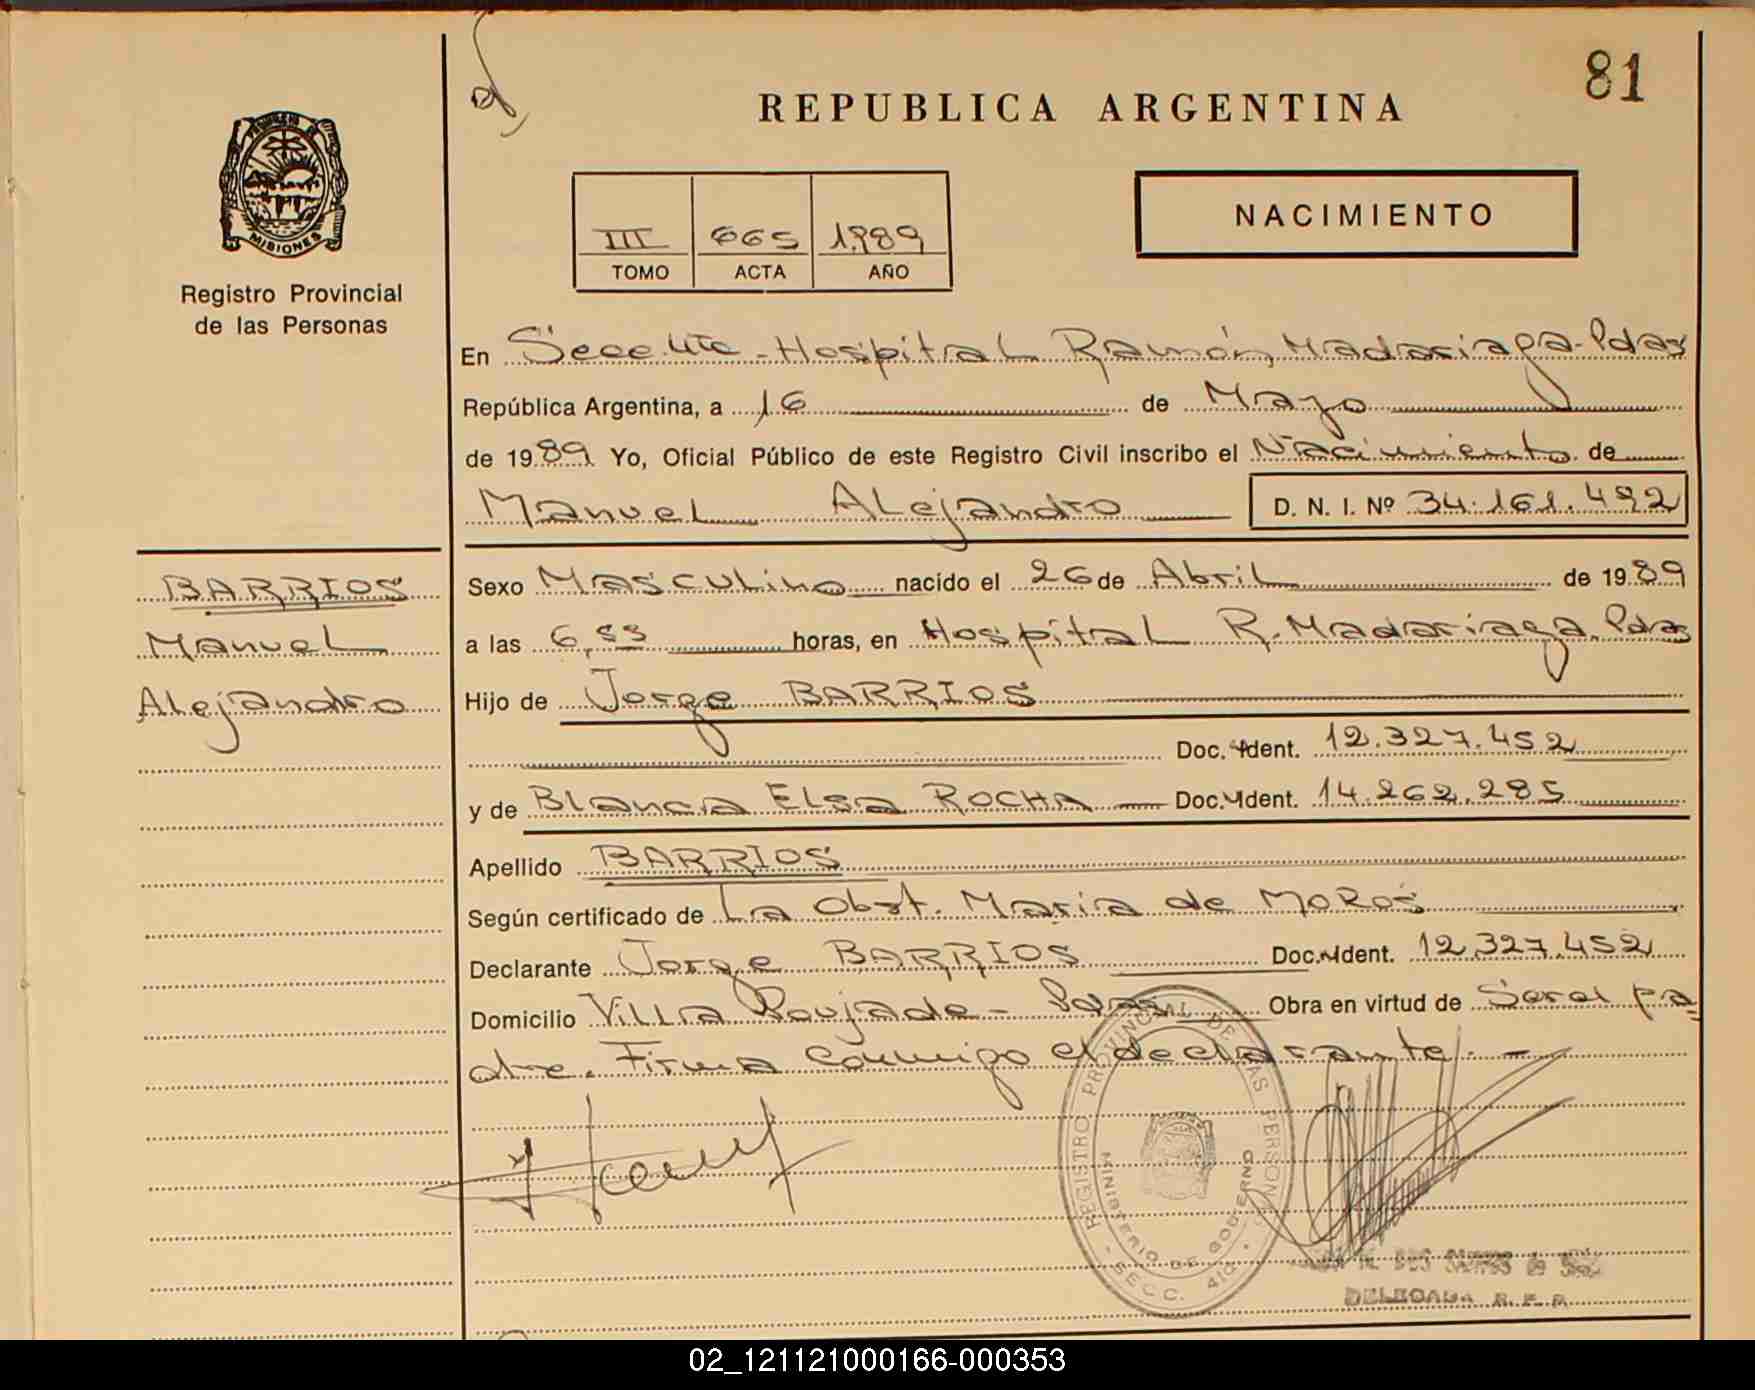 81
REPUBLICA ARGENTINA
PROVINCIA DE
MISIONES
Registro Provincial
de las Personas
III 665 1989
TOMO ACTA AÑO
NACIMIENTO
En Secc. 4ta - Hospital Ramón Madariaga - Pdas
República Argentina, a 16 de Mayo
de 1989 Yo, Oficial Público de este Registro Civil inscribo el Nacimiento de
Manuel Alejandro D. N. I. Nº 34.161.492
BARRIOS
Manuel
Alejandro
Sexo Masculino nacido el 26 de Abril de 1989
a las 6,55 horas, en Hospital R. Madariaga. Pdas
Hijo de Jorge BARRIOS
Doc. Ident. 12.327.452
y de Blanca Elsa ROCHA Doc. Ident. 14.262.285
Apellido BARRIOS
Según certificado de La Obst. Maria de MoRos
Declarante Jorge BARRIOS Doc. Ident. 12.327.452
Domicilio Villa Poujade - Pdas Obra en virtud de Serel pa=
dre. Firma conmigo el declarante. -
REGISTRO PROVINCIAL DE LAS PERSONAS
MINISTERIO DE GOBIERNO
- SECC. 4ta -
DELEGADA R. P. P.
02_121121000166-000353